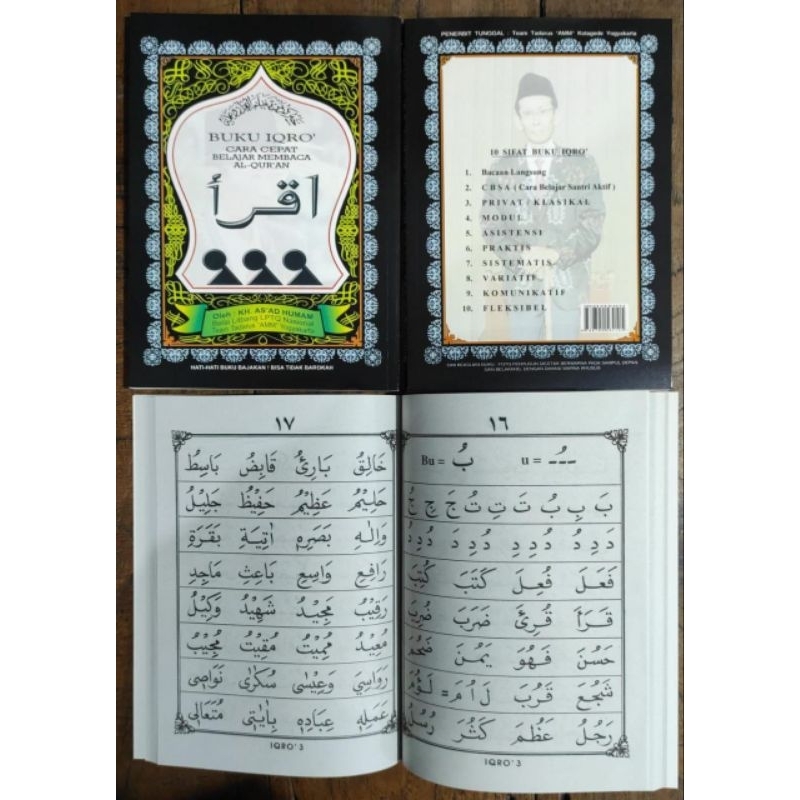 BUKU IQRO'
CARA CEPAT
BELAJAR MEMBACA
AL-QUR'AN
اقرأ
Oleh : KH. AS'AD HUMAM
Balai Litbang LPTQ Nasional
Team Tadarus "AMM" Yogyakarta
HATI-HATI BUKU BAJAKAN ! BISA TIDAK BAROKAH
PENERBIT TUNGGAL : Team Tadarus "AMM" Kotagede Yogyakarta
10 SIFAT BUKU IQRO'
1. Bacaan Langsung
2. C B S A ( Cara Belajar Santri Aktif )
3. PRIVAT / KLASIKAL
4. MODUL
5. ASISTENSI
6. PRAKTIS
7. SISTEMATIS
8. VARIATIF
9. KOMUNIKATIF
10. FLEKSIBEL
١٦
Bu = بُ u = ـُ
بَ بِ بُ تَ تِ تُ جَ جِ جُ
دَ دِ دُ دُ دِ دِ دُ دِ دَ دُ دِ دُ
فَعَلَ فُعِلَ كَتَبَ كُتِبَ
قَرَأَ قُرِئَ ضَرَبَ ضُرِبَ
حَسُنَ فَهُوَ يَمُنَ ضَحُمَ
شَجُعَ قَرُبَ لَ اُ مَ = لَؤُمَ
رَجُلُ عَظُمَ كَثُرَ رُسُلُ
IQRO' 3
١٧
خَالِقُ بَارِئُ قَابِضُ بَاسِطُ
حَلِيْمُ عَظِيْمُ حَفِيْظُ جَلِيْلُ
وَاِلٰهِ بَصَرِهٖ اٰتِيَةِ بَقَرَةِ
رَافِعِ وَاسِعِ بَاعِثِ مَاجِدِ
رَقِيْبُ مَجِيْدُ شَهِيْدُ وَكِيْلُ
مُعِيْدُ مُمِيْتُ مُقِيْتُ مُجِيْبُ
رَوَاسِيَ وَعِيْسٰى سُكَارٰى نَوَاصِى
عَمَلِهٖ عِبَادِهٖ بِاٰيٰتِى مُتَعَالِى
IQRO' 3